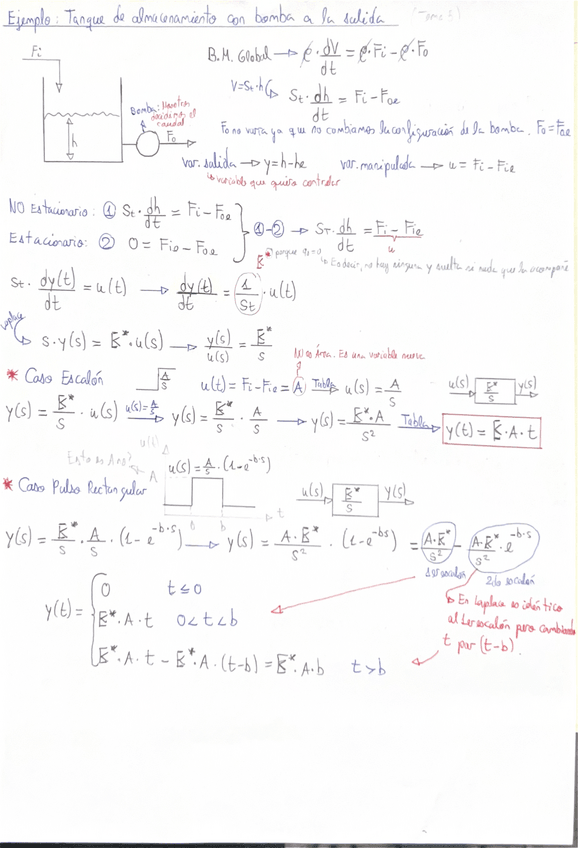 Ejemplo: Tanque de almacenamiento con bomba a la salida (Tema 3)
Fi
B.M. Global → ρ·dV/dt = ρ·Fi - ρ·Fo
V=St·h
St·dh/dt = Fi - Foe
Bomba: Nosotros decidimos el caudal
Fo
h
Fo no varia ya que no cambiamos la configuración de la bomba. Fo = Foe
var. salida → y = h-he
var. manipulada → u = Fi - Fie
↳ variable que quiero controlar
NO Estacionario: ① St·dh/dt = Fi - Foe
Estacionario: ② 0 = Fie - Foe
①-② → St·dh/dt = Fi - Fie
u
K* porque a1=0
↳ Es decir, no hay ninguna y suelta sin nada que la acompañe
St·dy(t)/dt = u(t) → dy(t)/dt = 1/St · u(t)
Laplace
↳ s·y(s) = K*·u(s) → y(s)/u(s) = K*/s
NO es Área. Es una variable nueva
* Caso Escalón A/s u(t) = Fi - Fie = A Tabla → u(s) = A/s
u(s) K*/s y(s)
y(s) = K*/s · u(s) u(s)=A/s → y(s) = K*/s · A/s → y(s) = K*·A/s² Tabla → y(t) = K·A·t
u(t)
Esto es A no?
A
u(s) = A/s · (1-e^-b·s)
0 b t
* Caso Pulso Rectangular
u(s) K*/s y(s)
y(s) = K*/s · A/s · (1-e^-b·s) → y(s) = A·K*/s² · (1-e^-bs) = A·K*/s² - A·K*/s² · e^-b·s
1er escalón
2do escalón
y(t) = { 0 t≤0
K*·A·t 0<t<b
K*·A·t - K*·A·(t-b) = K*·A·b t>b
↳ En Laplace es idéntico
al 1er escalón pero cambiando
t por (t-b).